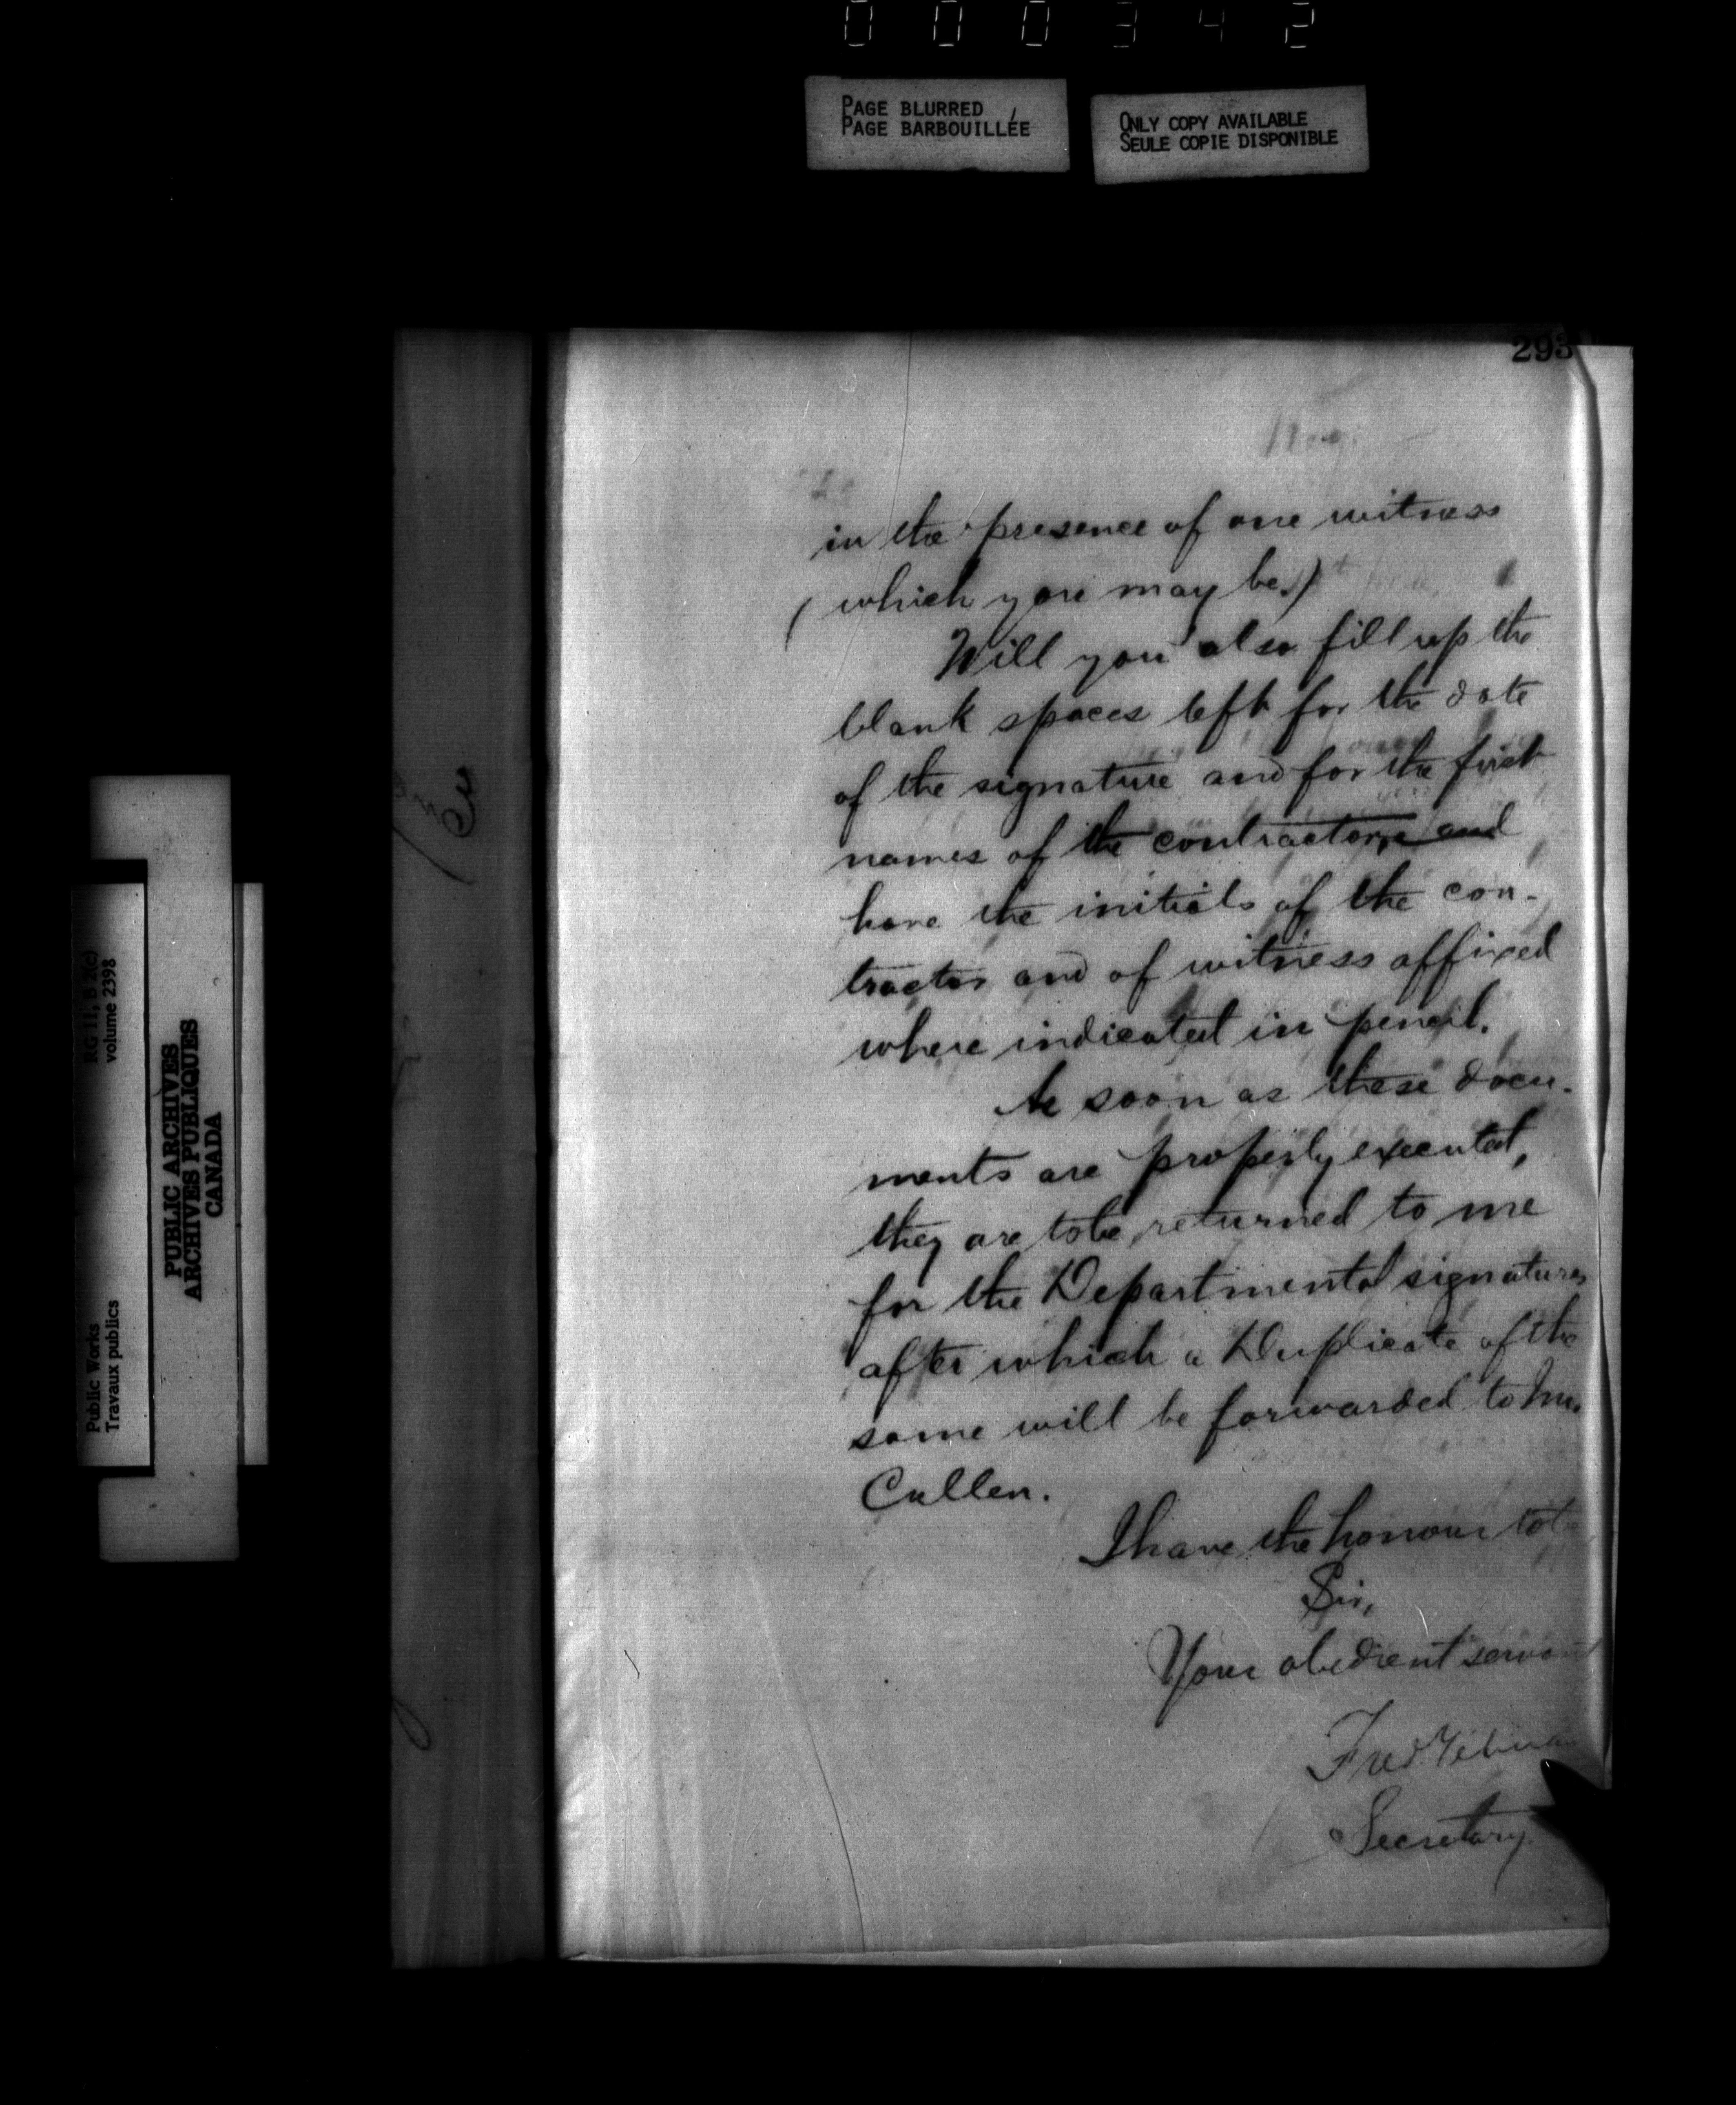 0 0 0 3 4 2
PAGE BLURRED
PAGE BARBOUILLÉE
ONLY COPY AVAILABLE
SEULE COPIE DISPONIBLE
293
in the presence of one witness
(which you may be.)
Will you also fill up the
blank spaces left for the date
of the signature and for the first
names of the contractors and
have the initials of the con-
tractor and of witness affixed
where indicated in pencil.
As soon as these docu-
ments are properly executed,
they are to be returned to me
for the Departmental signatures
after which a Duplicate of the
same will be forwarded to Mr.
Cullen.
I have the honour to be
Sir,
Your obedient servant
Fred.
Secretary.
RG 11, B 2(c)
volume 2398
Public Works
Travaux publics
PUBLIC ARCHIVES
ARCHIVES PUBLIQUES
CANADA